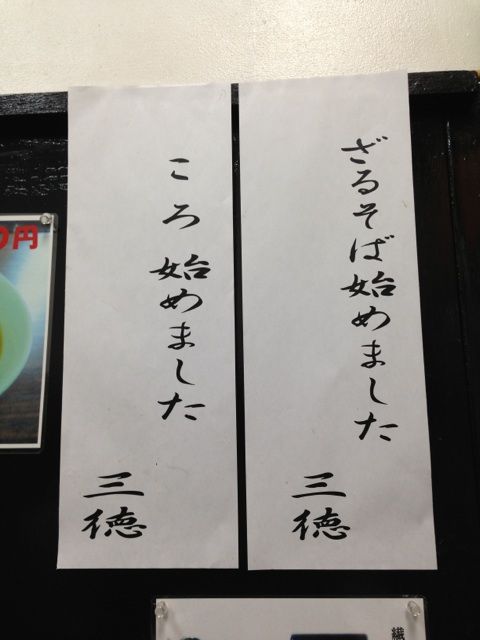 ざるそば始めました
三徳
ころ始めました
三徳
0円
繊